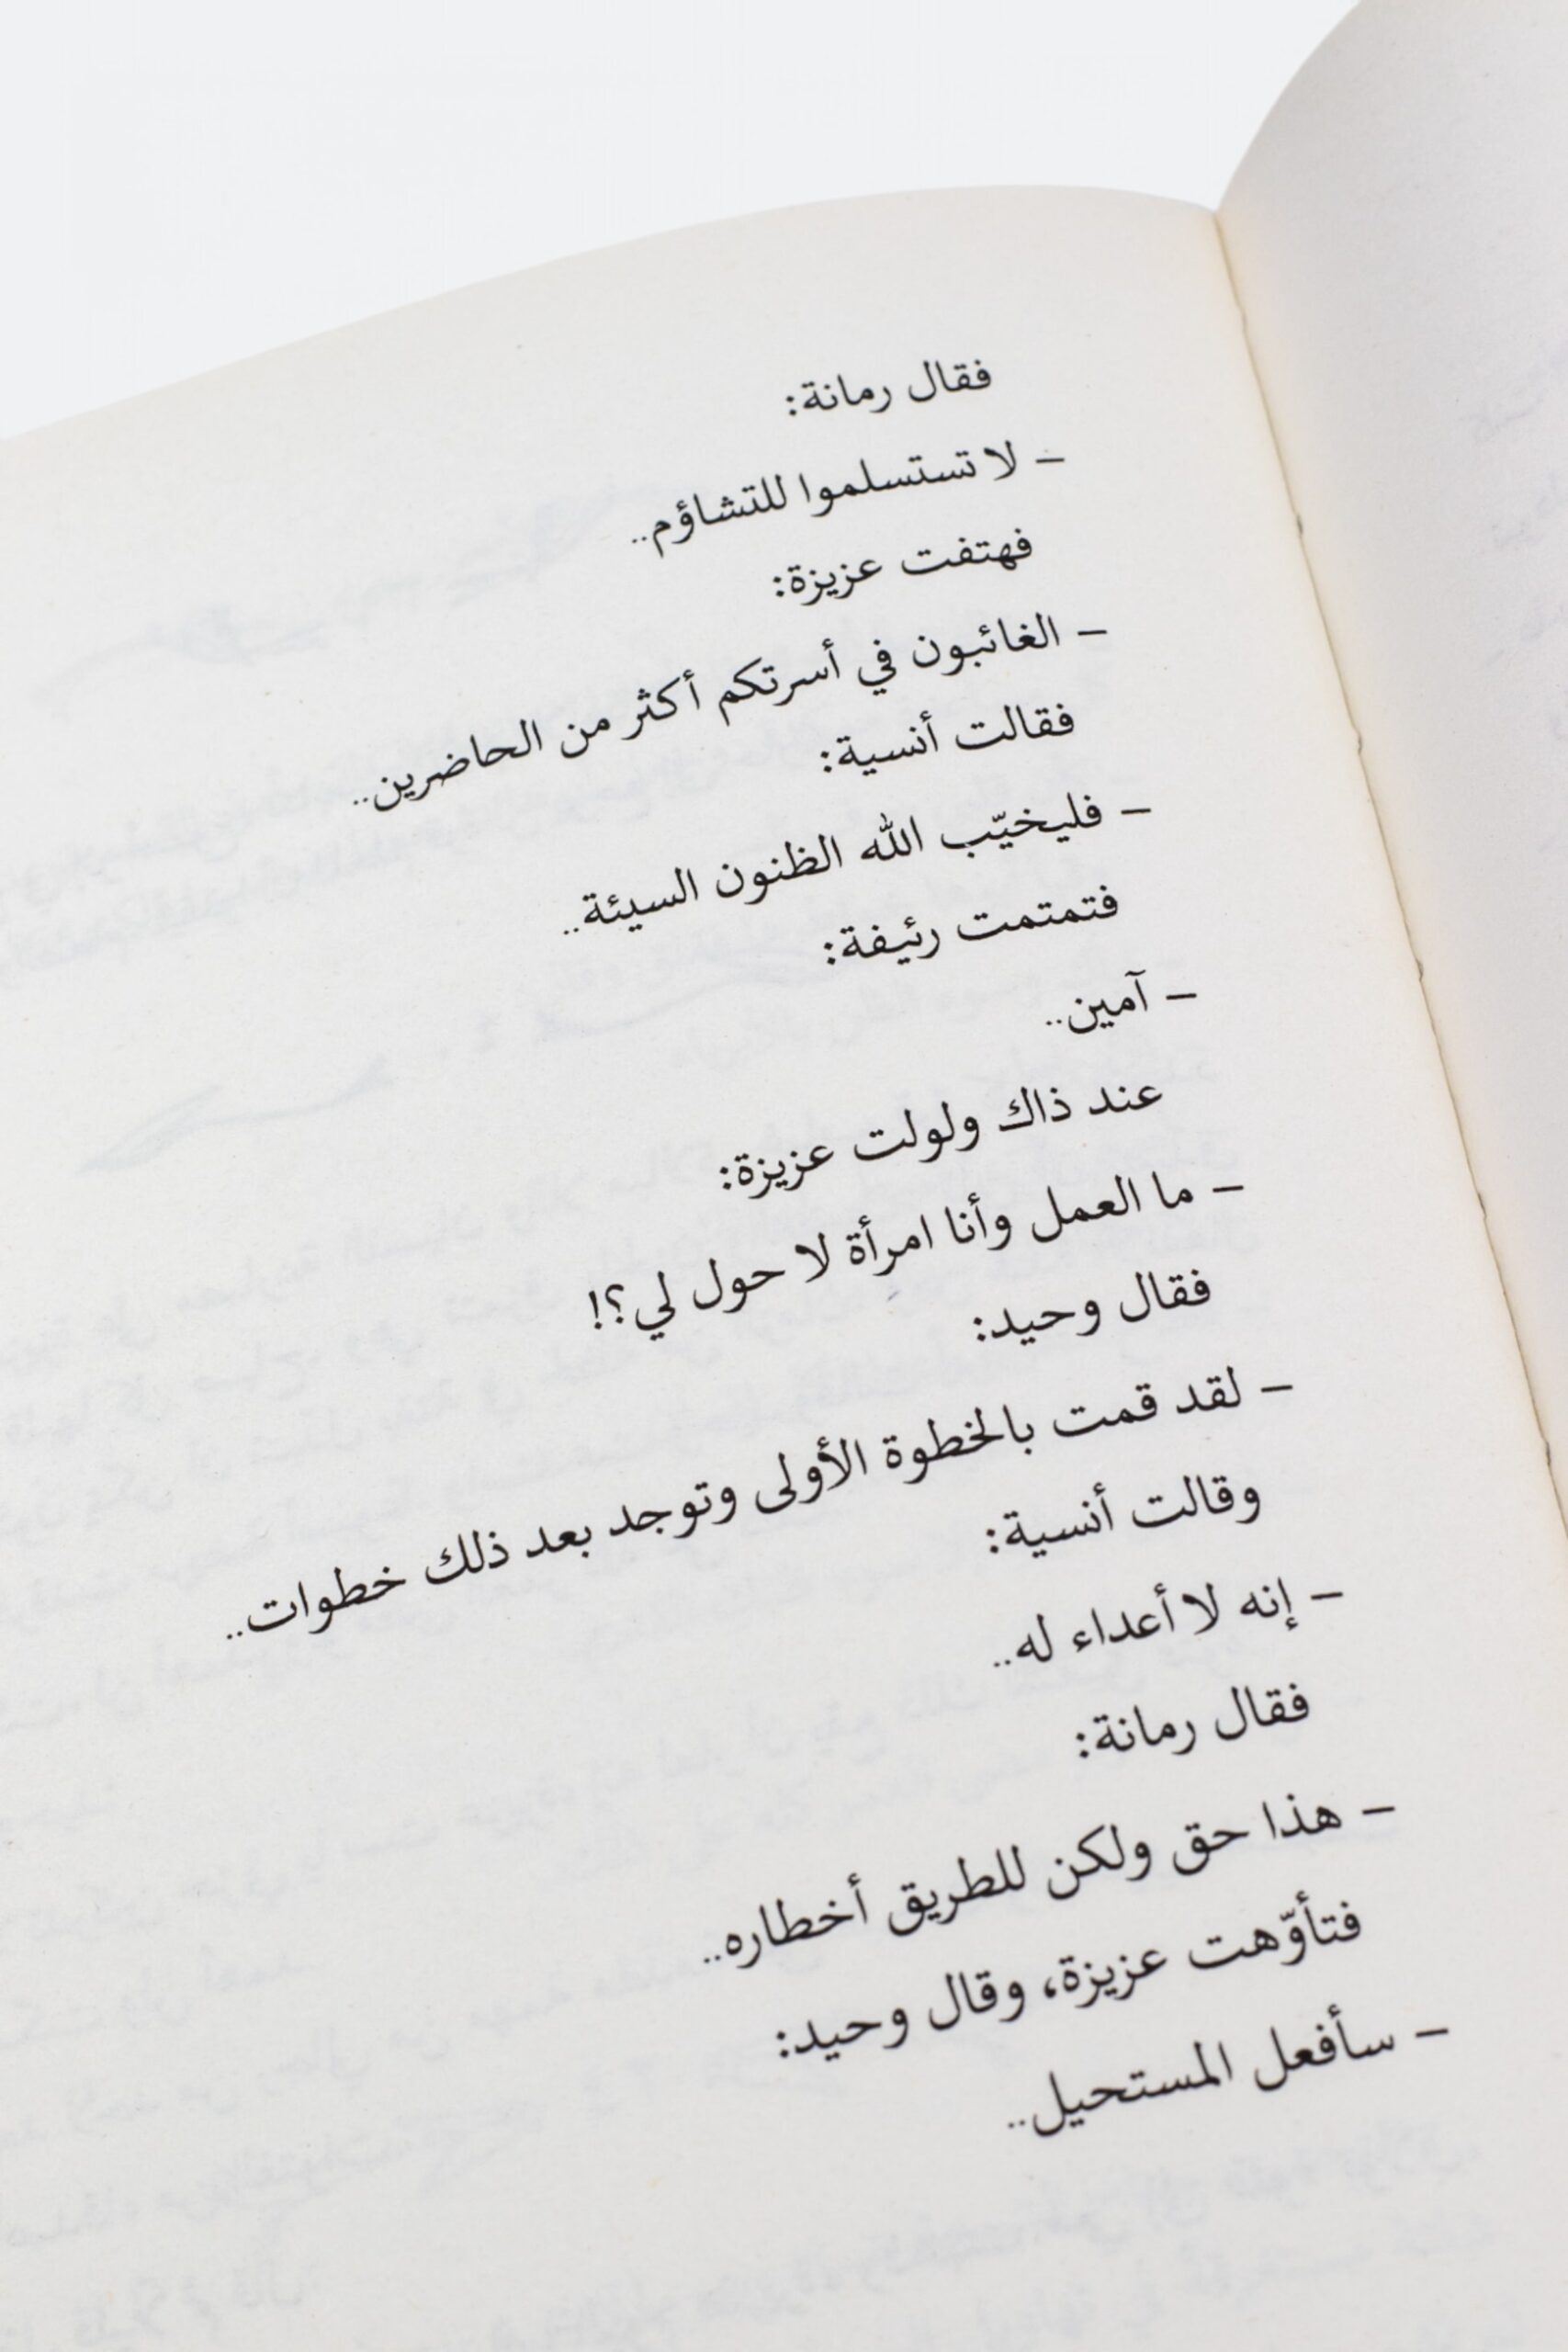 فقال رمانة:
– لا تستسلموا للتشاؤم..
فهتفت عزيزة:
– الغائبون في أسرتكم أكثر من الحاضرين..
فقالت أنسية:
– فليخيّب الله الظنون السيئة..
فتمتمت رئيفة:
– آمين..
عند ذاك ولولت عزيزة:
– ما العمل وأنا امرأة لا حول لي؟!
فقال وحيد:
– لقد قمت بالخطوة الأولى وتوجد بعد ذلك خطوات..
وقالت أنسية:
– إنه لا أعداء له..
فقال رمانة:
– هذا حق ولكن للطريق أخطاره..
فتأوّهت عزيزة، وقال وحيد:
– سأفعل المستحيل..